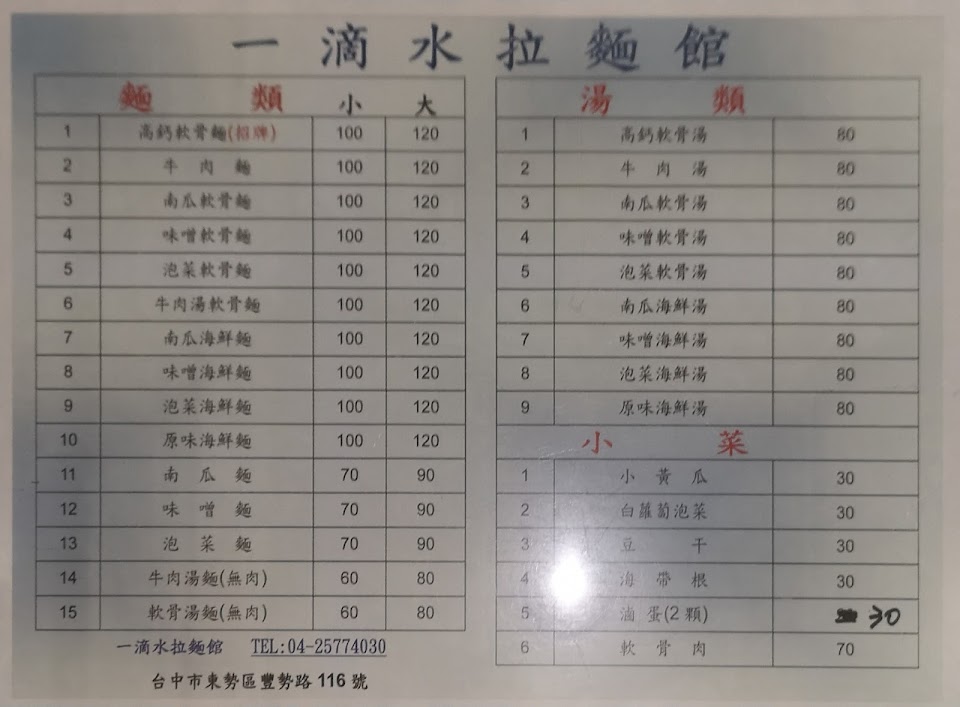 一滴水拉麵館
麵類 小 大
1 高鈣軟骨麵(招牌) 100 120
2 牛肉麵 100 120
3 南瓜軟骨麵 100 120
4 味噌軟骨麵 100 120
5 泡菜軟骨麵 100 120
6 牛肉湯軟骨麵 100 120
7 南瓜海鮮麵 100 120
8 味噌海鮮麵 100 120
9 泡菜海鮮麵 100 120
10 原味海鮮麵 100 120
11 南瓜麵 70 90
12 味噌麵 70 90
13 泡菜麵 70 90
14 牛肉湯麵(無肉) 60 80
15 軟骨湯麵(無肉) 60 80
一滴水拉麵館 TEL:04-25774030
台中市東勢區豐勢路 116 號
湯類
1 高鈣軟骨湯 80
2 牛肉湯 80
3 南瓜軟骨湯 80
4 味噌軟骨湯 80
5 泡菜軟骨湯 80
6 南瓜海鮮湯 80
7 味噌海鮮湯 80
8 泡菜海鮮湯 80
9 原味海鮮湯 80
小菜
1 小黃瓜 30
2 白蘿蔔泡菜 30
3 豆干 30
4 海帶根 30
5 滷蛋(2 顆) 30
6 軟骨肉 70